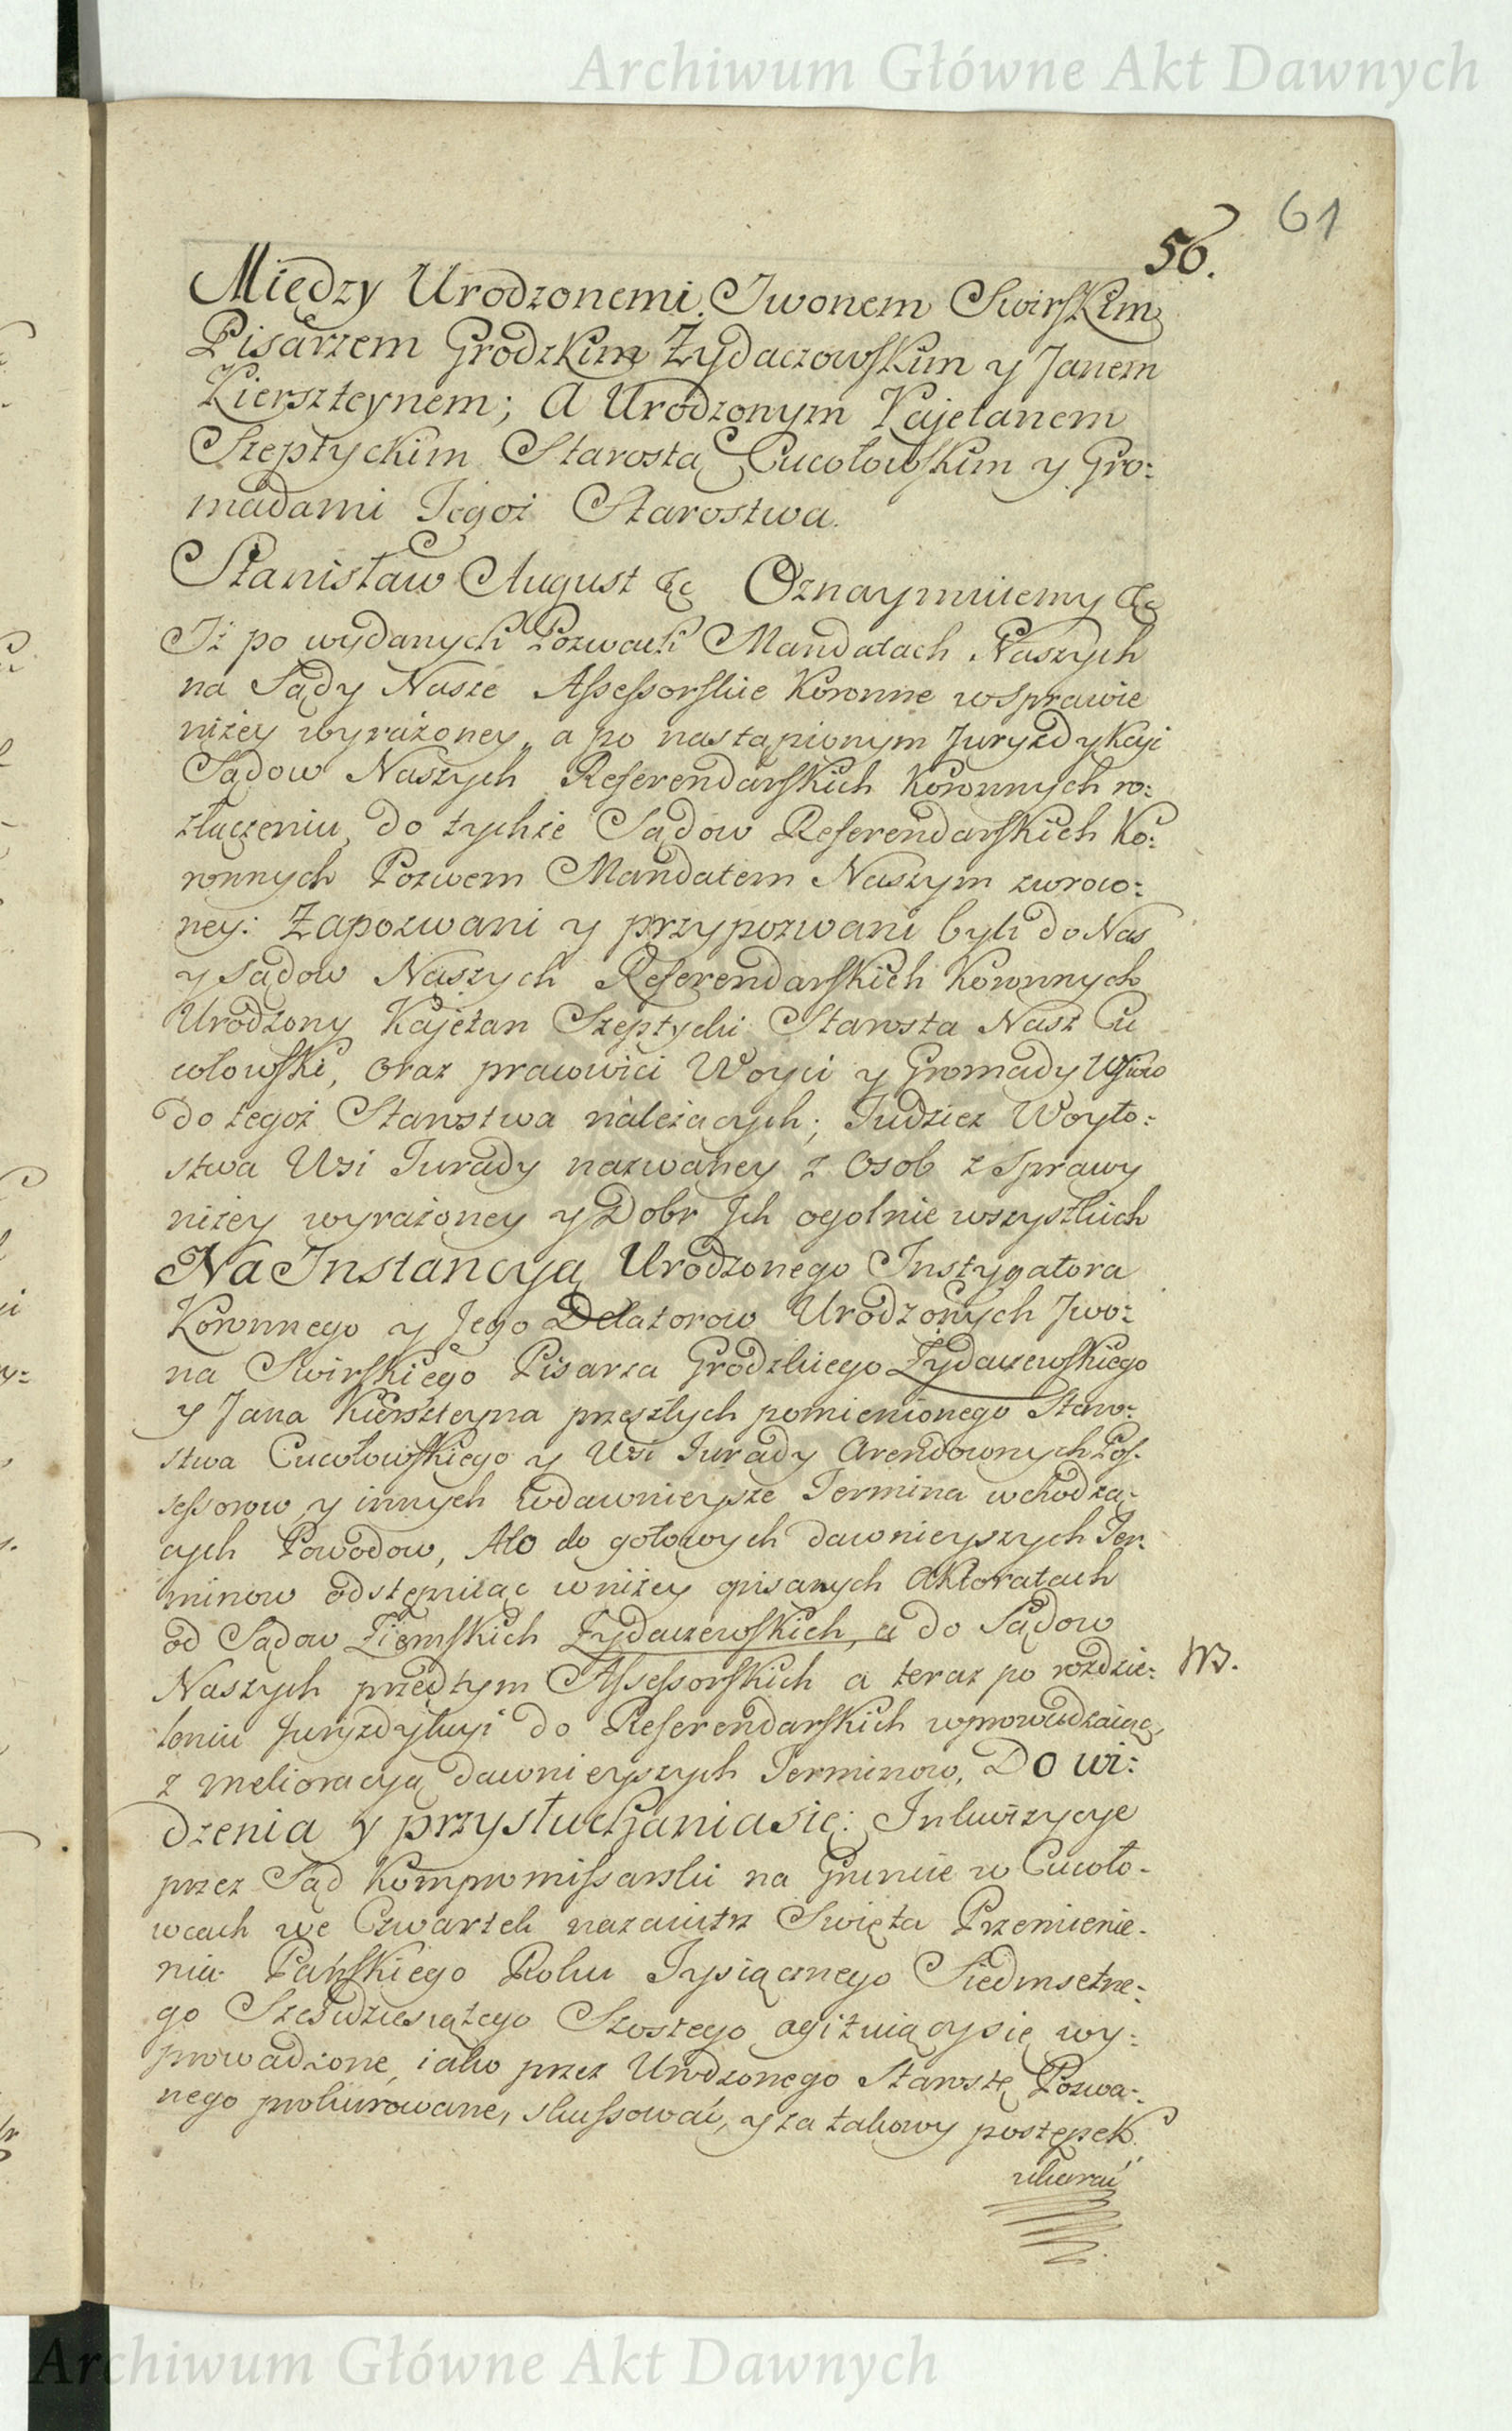 Archiwum Główne Akt Dawnych
61
56.
Między Urodzonemi Jwonem Swirskim
Pisarzem Grodzkim Żydaczowskim y Janem
Kierszteynem; A Urodzonym Kajetanem
Szeptyckim Starostą Cucołowskim y Gro:
madami Tegoż Starostwa.
Stanisław August &c Oznaymuiemy &c
Iż po wydanych Pozwach Mandatach Naszych
na Sądy Nasze Assessorskie Koronne w sprawie
niżey wyrażoney, a po nastąpionym Juryzdykcyi
Sądow Naszych Referendarskich Koronnych ro:
złączeniu, do tychże Sądow Referendarskich Ko:
ronnych Pozwem Mandatem Naszym zwroco:
ney: Zapozwani y przypozwani byli do Nas
y Sądow Naszych Referendarskich Koronnych
Urodzony Kajetan Szeptycki Starosta Nasz Cu
cołowski, oraz pracowici Woyci y Gromady
do tegoż Starostwa należących; Tudzież Woyto:
stwa Wsi Jurady nazwaney z Osob z Sprawy
niżey wyrażoney y Dobr Jch ogolnie wszystkich
Na Jnstancyą Urodzonego Jnstygatora
Koronnego y Jego Delatorow Urodzonych Jwo:
na Swirskiego Pisarza Grodzkiego Żydaczewskiego
y Jana Kierszteyna przeszłych pomienionego Staro:
stwa Cucołowskiego y Wsi Jurady Arendownych Pos:
sessorow, y innych w dawnieysze Termina wchodzą:
cych Powodow, Ato do gotowych dawnieyszych Ter:
minow odstępuiąc w niżey opisanych Aktoratach
od Sądow Ziemskich Żydaczewskich, a do Sądow
Naszych przedtym Assessorskich a teraz po rozdzie: NB.
leniu Juryzdykcyi do Referendarskich wprowadzaiąc,
z melioracyą dawnieyszych Terminow, Do wi:
dzenia y przysłuchania się: Jnkwizycye
przez Sąd Kompromissarski na Gruncie w Cucoło:
wcach we Czwartek nazaiutrz Swięta Przemienie:
nia Pańskiego Roku Tysiącznego Siedmsetne:
go Sześćdziesiątego Szostego agituiący się wy:
prowadzone, iako przez Urodzonego Starostę Pozwa:
nego prokurowane, skassować, y za takowy postępek
ukarać
Archiwum Główne Akt Dawnych